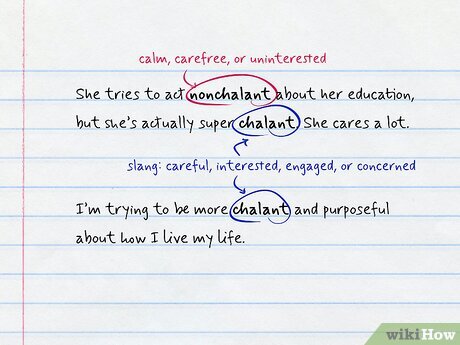 calm, carefree, or uninterested
She tries to act nonchalant about her education,
but she's actually super chalant. She cares a lot.
slang: careful, interested, engaged, or concerned
I'm trying to be more chalant and purposeful
about how I live my life.
wikiHow